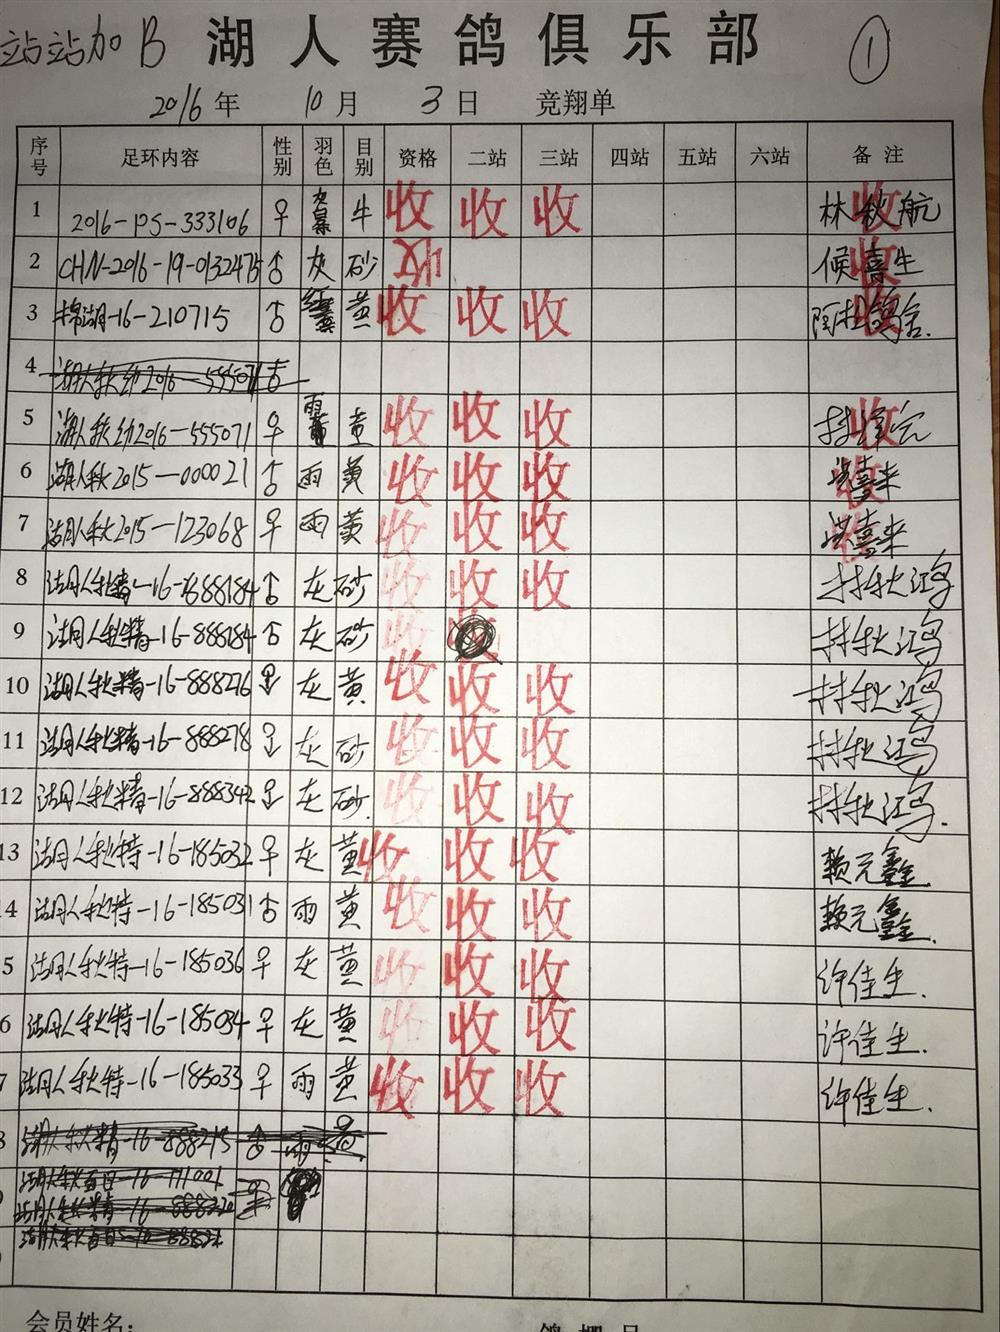 站站加B 湖人赛鸽俱乐部 ①
2016年 10月 3日 竞翔单
序号 足环内容 性别 羽色 目别 资格 二站 三站 四站 五站 六站 备注
1 2016-05-333106 ♀ 牛 收 收 收 林秋航 收
2 CHN-2016-19-0132475 ♂ 灰 砂 收 候喜生 收
3 棉湖-16-210715 ♂ 黄 收 收 收 鸽舍. 收
4 湖人秋幼2016-555071 ♂
5 湖人秋幼2016-555071 ♀ 黄 收 收 收 收
6 湖人秋2015-000021 ♂ 雨 黄 收 收 收 洪喜来 收
7 湖人秋2015-123068 ♀ 雨 黄 收 收 收 洪喜来 收
8 湖人秋精-16-888184 ♂ 灰 砂 收 收 收 林秋鸿
9 湖人秋精-16-888184 ♂ 灰 砂 收 收 林秋鸿
10 湖人秋精-16-888276 灰 黄 收 收 收 林秋鸿
11 湖人秋精-16-888278 灰 砂 收 收 收 林秋鸿
12 湖人秋精-16-888342 灰 砂. 收 收 收 林秋鸿.
13 湖人秋特-16-185032 ♀ 灰 黄 收 收 收 赖元鑫
14 湖人秋特-16-185031 ♂ 雨 黄 收 收 收 赖元鑫.
5 湖人秋特-16-185036 ♀ 灰 黄 收 收 收 许佳生.
6 湖人秋特-16-185034 ♀ 灰 黄 收 收 收 许佳生.
7 湖人秋特-16-185033 ♀ 雨 黄 收 收 收 许佳生.
8 湖人秋精-16-888215 ♂ 雨
会员姓名: